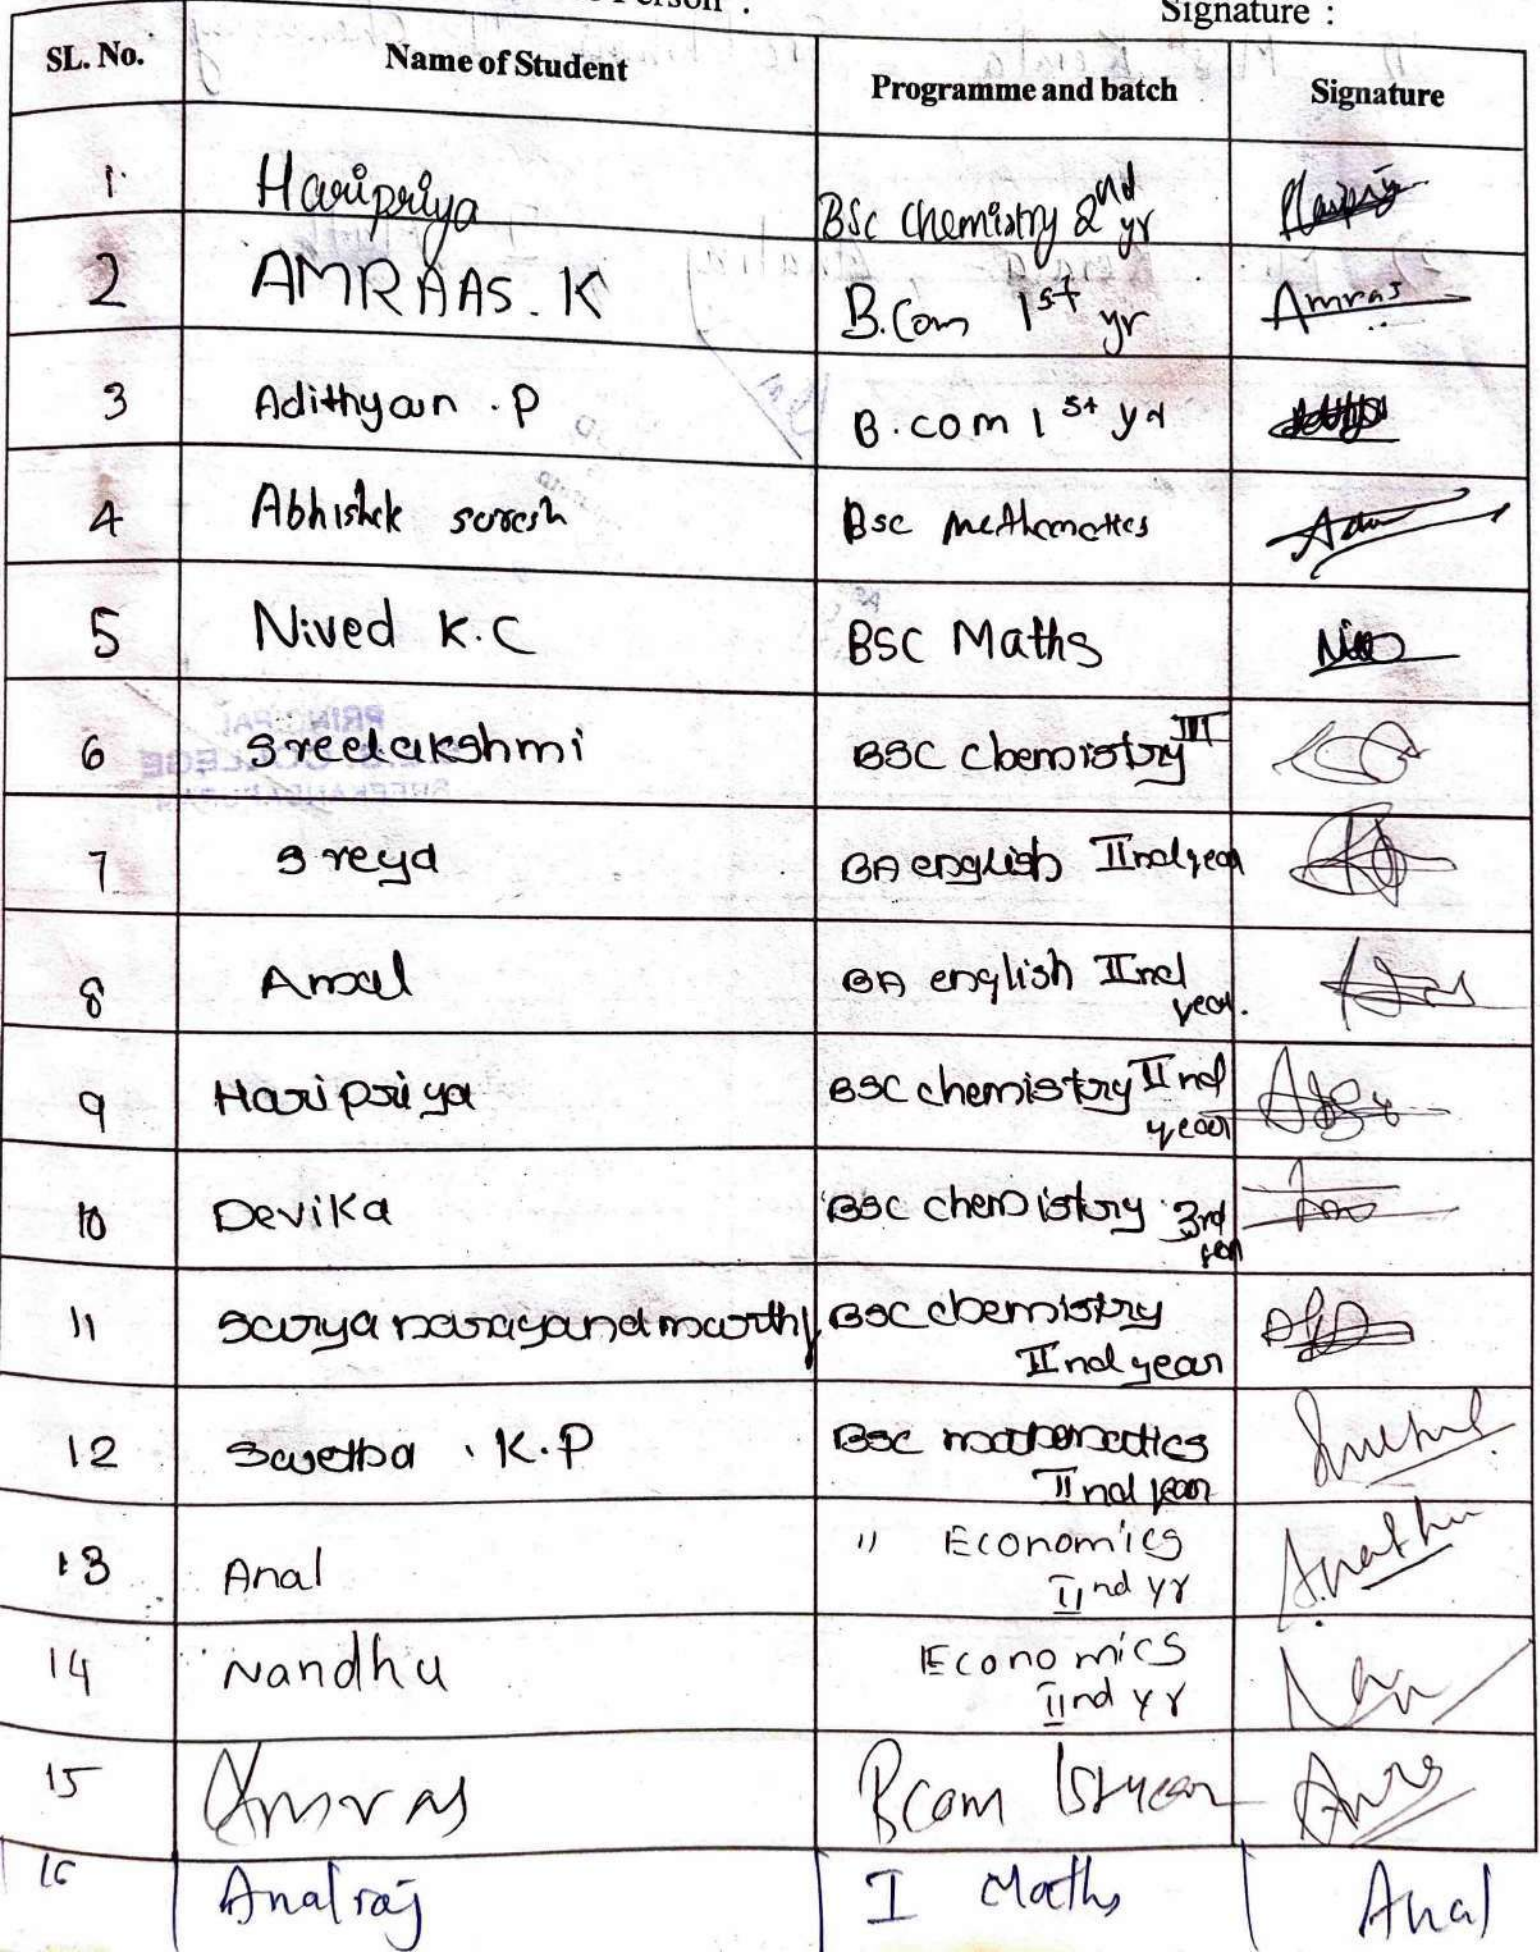 Person :
Signature :
SL. No. Name of Student Programme and batch Signature
1 Haripriya BSc Chemistry 2nd yr
2 AMRAAS. K B.Com 1st yr Amras
3 Adithyan . P B.com 1st yr
4 Abhishek suresh Bsc Methematics
5 Nived K.C BSC Maths
6 Sreelakshmi BSC chemistry III
7 Sreya BA english IInd year
8 Amal BA english IInd
year.
9 Haripriya BSC chemistry IInd
year
10 Devika BSC chemistry 3rd
year
11 BSC chemistry
IInd year
12 K.P BSC mathematics
IInd year
13 Anal " Economics
IInd yr
14 Nandhu Economics
IInd yr
15 Amras Bcom 1st year
16 Analraj I Maths Anal